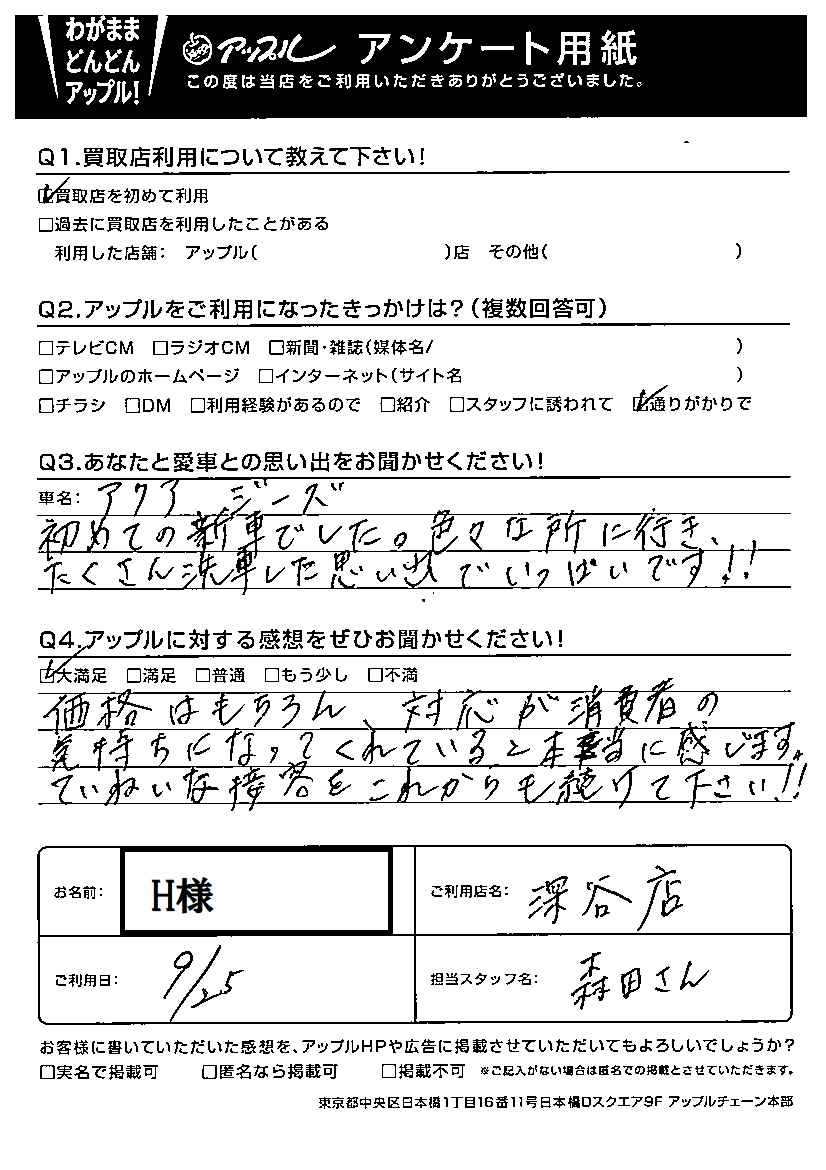 わがまま
どんどん
アップル!
アップル アンケート用紙
この度は当店をご利用いただきありがとうございました。
Q1.買取店利用について教えて下さい!
☑買取店を初めて利用
□過去に買取店を利用したことがある
利用した店舗: アップル( )店 その他( )
Q2.アップルをご利用になったきっかけは?(複数回答可)
□テレビCM □ラジオCM □新聞・雑誌(媒体名/ )
□アップルのホームページ □インターネット(サイト名 )
□チラシ □DM □利用経験があるので □紹介 □スタッフに誘われて ☑通りがかりで
Q3.あなたと愛車との思い出をお聞かせください!
車名: アクア ジーズ
初めての新車でした。色々な所に行き、
たくさん洗車した思い出でいっぱいです!!
Q4.アップルに対する感想をぜひお聞かせください!
☑大満足 □満足 □普通 □もう少し □不満
価格はもちろん、対応が消費者の
気持ちになってくれていると本当に感じます。
ていねいな接客をこれからも続けて下さい!!
お名前: H様 ご利用店名: 深谷店
ご利用日: 9/25 担当スタッフ名: 森田さん
お客様に書いていただいた感想を、アップルHPや広告に掲載させていただいてもよろしいでしょうか?
□実名で掲載可 □匿名なら掲載可 □掲載不可 ※ご記入がない場合は匿名での掲載とさせていただきます。
東京都中央区日本橋1丁目16番11号日本橋Dスクエア9F アップルチェーン本部